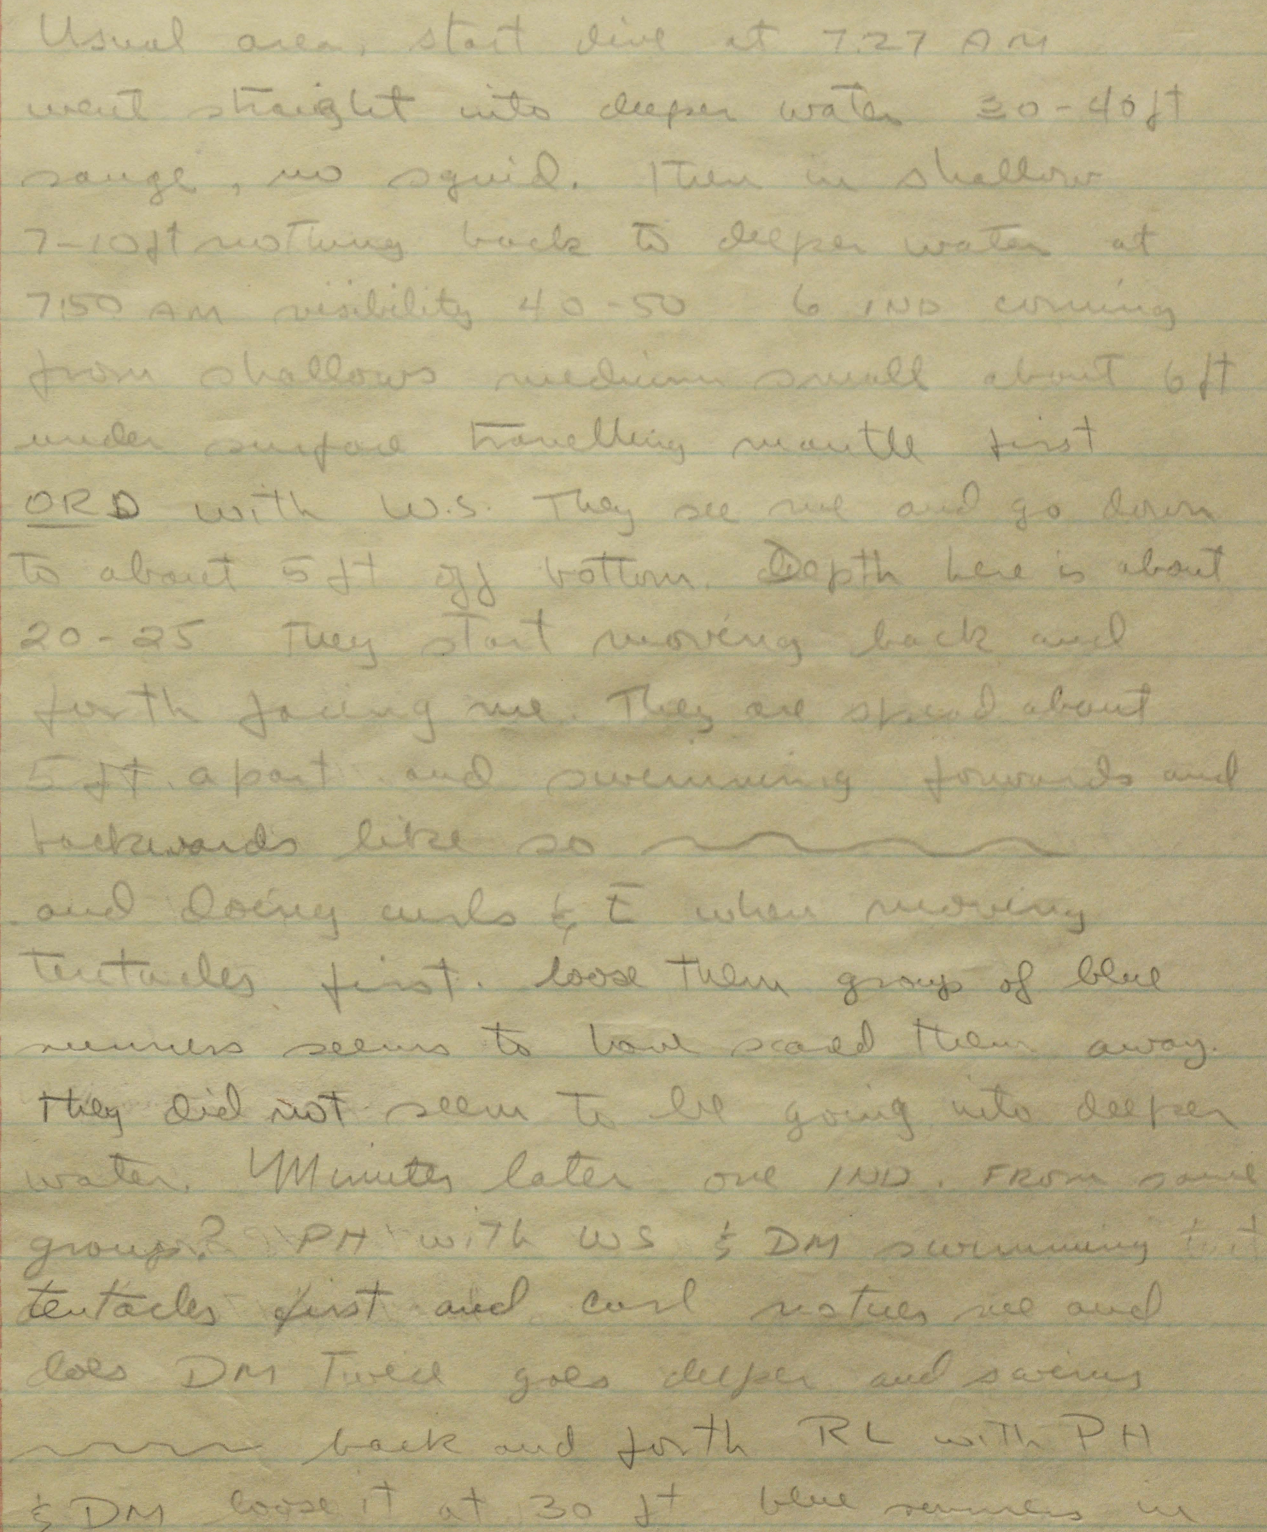 Usual area, start dive at 7:27 AM
went straight into deeper water 30-40ft
range, no squid. Then in shallow
7-10ft nothing back to deeper water at
7:50 AM visibility 40-50 6 IND coming
from shallows medium small about 6ft
under surface travelling mantle first
ORD with W.S. They see me and go down
to about 5ft off bottom. Depth here is about
20-25 They start moving back and
forth facing me. They are spread about
5ft. apart and swimming forwards and
backwards like so
and doing curls & when moving
tentacles first. loose them group of blue
runners seems to have scared them away.
They did not seem to be going into deeper
water. Minutes later one IND. FROM same
group? PH with WS & DM swimming
tentacles first and curl notices me and
does DM Twice goes deeper and swims
back and forth RL with PH
& DM loose it at 30 ft blue runners in